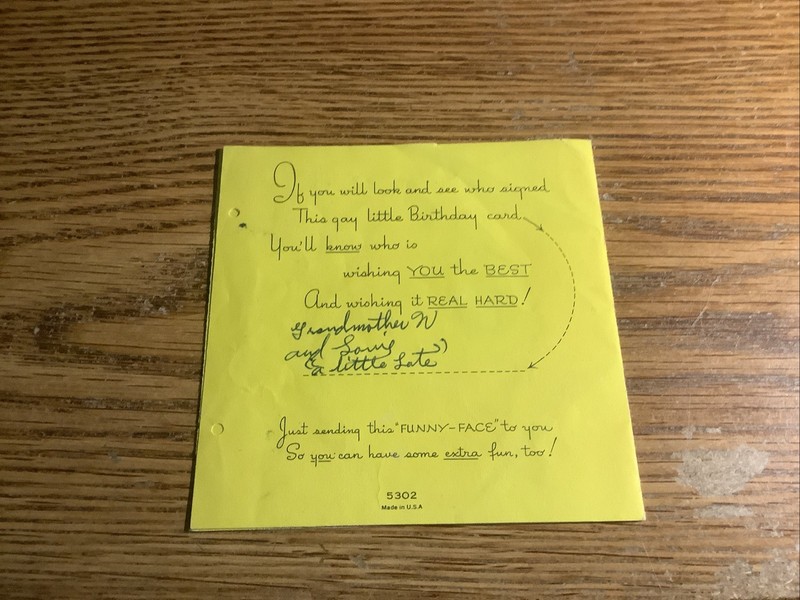 If you will look and see who signed
This gay little Birthday card
You'll know who is
wishing YOU the BEST
And wishing it REAL HARD!
Grandmother W
and Louis
(a little Late)
Just sending this "FUNNY-FACE" to you
So you can have some extra fun, too!
5302
Made in U.S.A